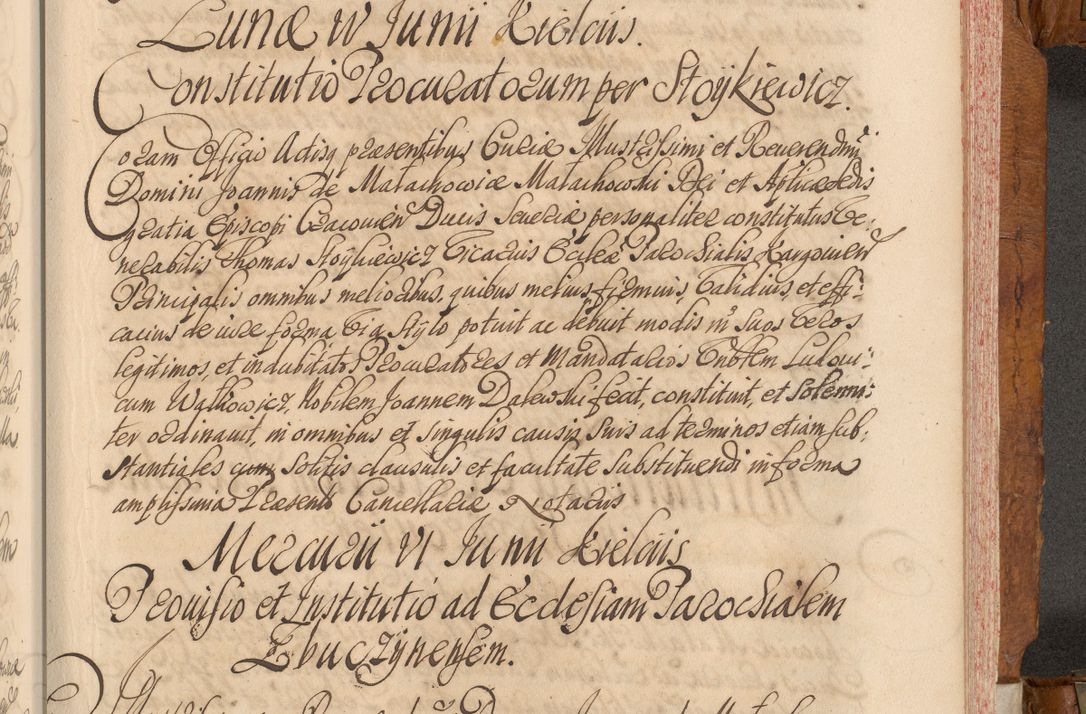 Lunæ IV Junii Kielciis.
Constitutio Procuratorum per Stoÿkiewicz.
Coram Officio Actisq præsentibus Curiæ Illustrissimi et Reuerendmi
Domini Joannis de Małachowice Małachowski Dei et Aplicæ Sedis
gratia Episcopi Cracouien Ducis Seueriæ personaliter constitutus Ve:
nerabilis Thomas Stoÿkiewicz Vicarius Ecclæ Parochialis Kargouien
Principalis omnibus melioribus, quibus melius, firmius, Validius, et effi:
cacius de iure forma Via stylo potuit ac debuit modis in suos Veros
legitimos, et indubitatos Procuratores et Mandatarios Vnbtem Ludoui:
cum Walkowicz, Nobilem Joannem Dalewski fecit, constituit, et solenni:
ter ordinauit, in omnibus et singulis causis suis ad terminos etiam sub:
stantiales cum solitis clausulis et facultate substituendi in forma
amplissima Præsente Cancellariæ Notariis
Mercurii VI Junii Kielciis
Prouisio et Institutio ad Ecclesiam Parochialem
Zbuczÿnensem.